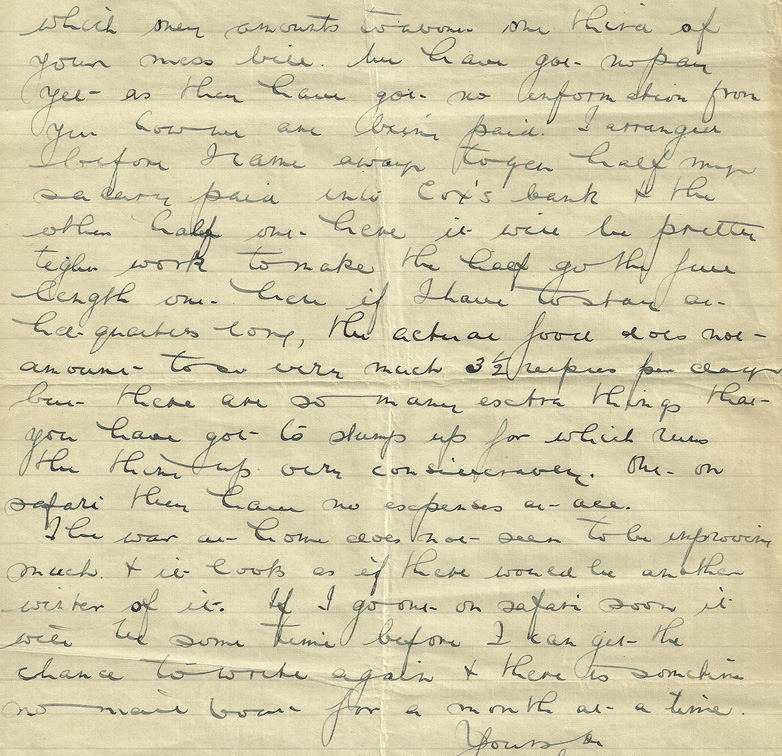 which only amounts to about one third of
your mess bill. We have got no pay
yet as they have got no information from
you how we are being paid. I arranged
before I came away to get half my
salary paid into Cox's bank & the
other half out here it will be pretty
tight work to make the half go the full
length out here if I have to stay at
hd-quarters long, the actual food does not
amount to so very much 3½ rupees per day
but there are so many extra things that
you have got to stump up for which runs
the thing up very considerably. Out on
safari they have no expenses at all.
The war at home does not seem to be improving
much & it looks as if there would be another
winter of it. If I go out on safari soon it
will be some time before I can get the
chance to write again & there is sometimes
no mail boat for a month at a time.
Yours